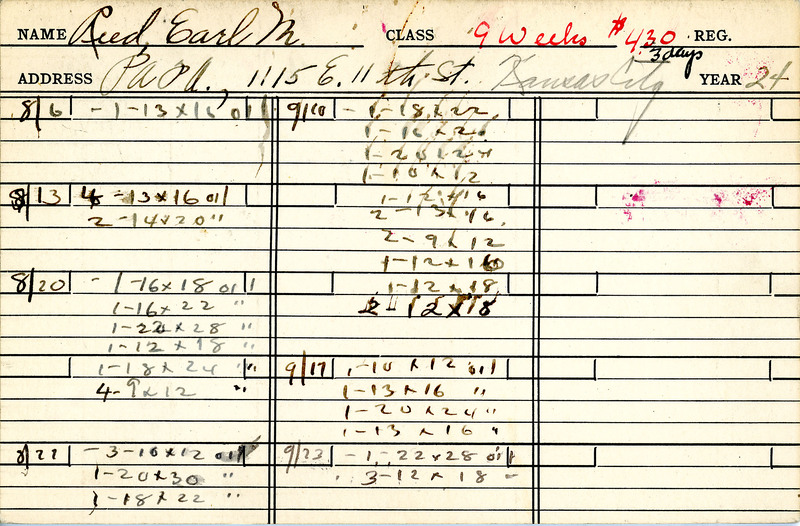 NAME Reed Earl M. CLASS 9 Weeks $4.30 REG.
3 days
ADDRESS 1115 E. 11th St. Kansas City YEAR 24
8/6 - 1-13x16 oil
8/13 4-13x16 oil
2-14x20 "
8/20 - 1-16x18 oil
1-16x22 "
1-22x28 "
1-12x18 "
1-18x24 "
4-9x12 "
8/22 - 3-10x12 oil
1-20x30 "
1-18x22 "
9/10 - 1-18x22
1-16x20
1-20x24
1-10x12
1-12x16
2-13x16
2-9x12
1-12x16
1-12x18
2 " 12x18
9/17 1-10x12 oil
1-13x16 "
1-20x24 "
1-13x16 "
9/23 - 1-22x28 oil
3-12x18 "